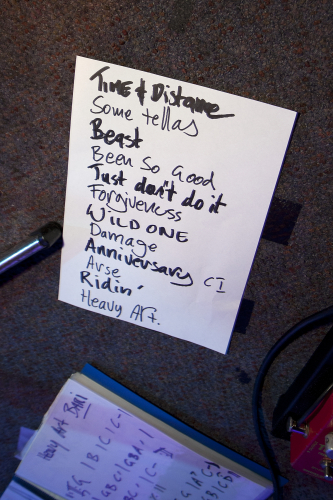 TIME & Distance
Some fellas
Beast
Been So Good
Just don't do it
Forgiveness
WILD ONE
Damage
Anniversary CI
Arse
Ridin'
Heavy Art.
Heavy Art